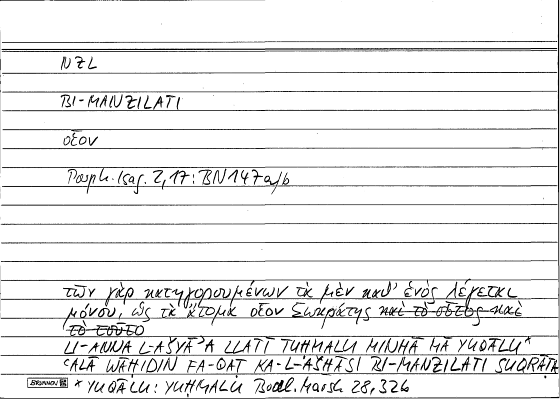 NZL
BI-MANZILATI
οἷον
Porph. Isag. 2,17: BN 147 a/b
τῶν γὰρ κατηγορουμένων τὰ μὲν καθ' ἑνὸς λέγεται
μόνου, ὡς τὰ ἄτομα οἷον Σωκράτης καὶ τὸ οὗτος καὶ
τὸ τοῦτο
LI-ANNA L-AŠYĀʾA LLATĪ TUḤMALU MINHĀ MĀ YUQĀLU*
ʿALĀ WĀḤIDIN FA-QAṬ KA-L-AŠḪĀṢI BI-MANZILATI SUQRĀṬA
BRUNNEN * YUQĀLU: YUḤMALU Bodl. Marsh 28, 32b